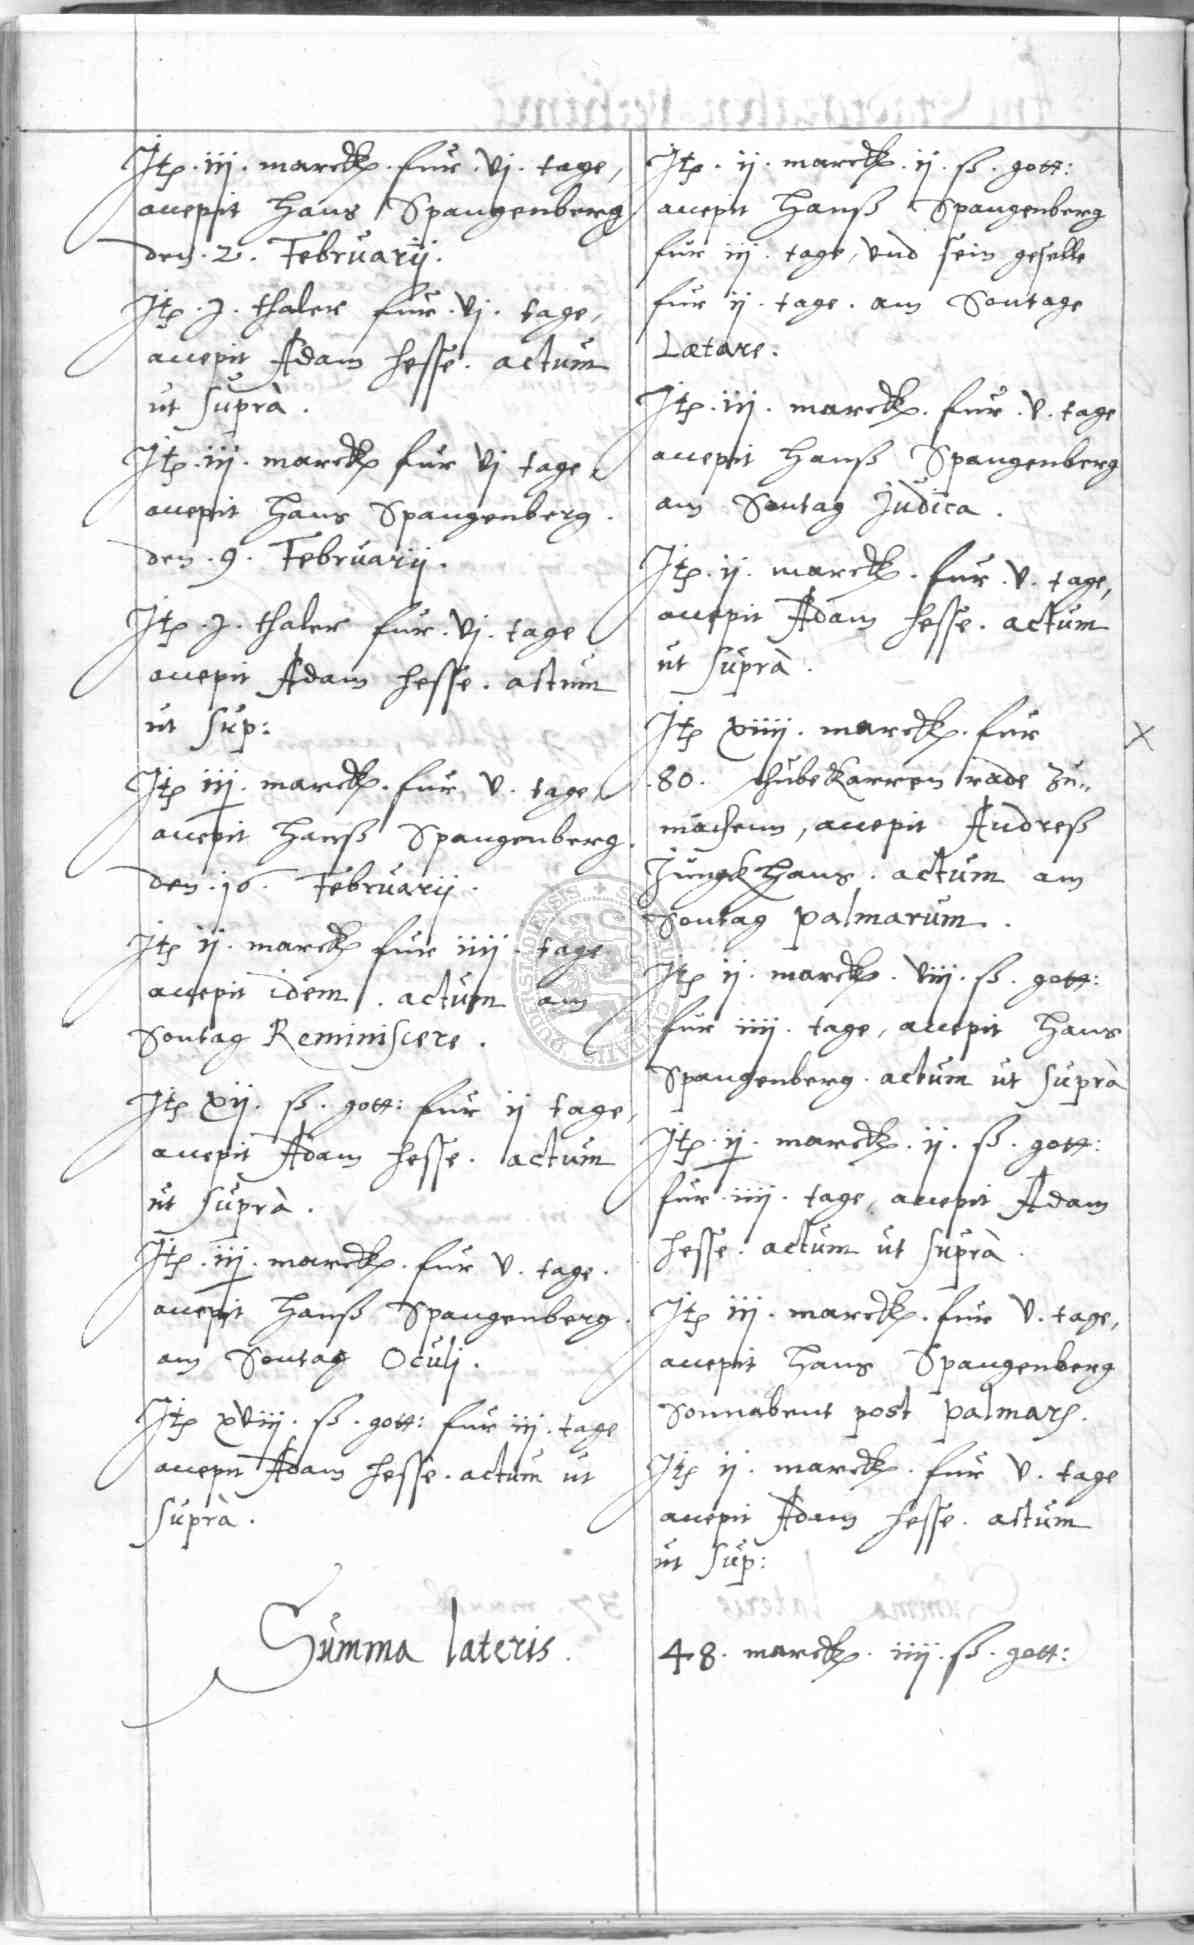 Itp . iij . marckk . fur . vj . tage,
accepit Hans Spangenberg
den . 2 . Februarij .
Itp . j . thaler fur . vj . tage,
accepit Adam Hesse . actum
ut suprà .
Itp . iij . marckk fur vj tage,
accepit Hans Spangenberg .
den . 9 . Februarij .
Itp . j . thaler fur . vj . tage
accepit Adam Hesse . actum
ut sup:
Itp iij . marckk . fur v . tage,
accepit Hanß Spangenberg .
den . 16 . Februarij .
Itp ij . marckk fur iiij . tage
accepit idem . actum am
Sontag Reminiscere .
Itp xij . ß . gott: fur ij tage,
accepit Adam Hesse . actum
ut suprà .
Itp . iij . marckk . fur v . tage .
accepit Hanß Spangenberg .
am Sontag Oculj .
Itp xviij . ß . gott: fur iij . tage
accepit Adam Hesse . actum ut
suprà .
Summa lateris .
Itp . ij . marckk . ij . ß . gott:
accepit Hanß Spangenberg
fur iij . tage, und sein geselle
fur ij . tage . am Sontage
Lætare .
Itp . iij . marckk . fur . v . tage
accepit Hanß Spangenberg
am Sontag Judica .
Itp . ij . marckk . fur . v . tage,
accepit Adam Hesse . actum
ut suprà .
Itp xiiij . marckk . fur
. 80 . schubekarren rade zu„
machenn, accepit Andreß
Jungkhans . actum am
Sontag palmarum .
Itp ij . marckk . viij . ß . gott:
fur iiij . tage, accepit Hans
Spangenberg . actum ut suprà
Itp . ij . marckk . ij . ß . gott:
fur . iiij . tage, accepit Adam
Hesse . actum ut suprà .
Itp iij . marckk . fur v . tage,
accepit Hans Spangenberg
Sonnabent post palmarum .
Itp ij . marckk . fur v . tage
accepit Adam Hesse . actum
ut sup:
48 . marckk . iiij . ß . gott: